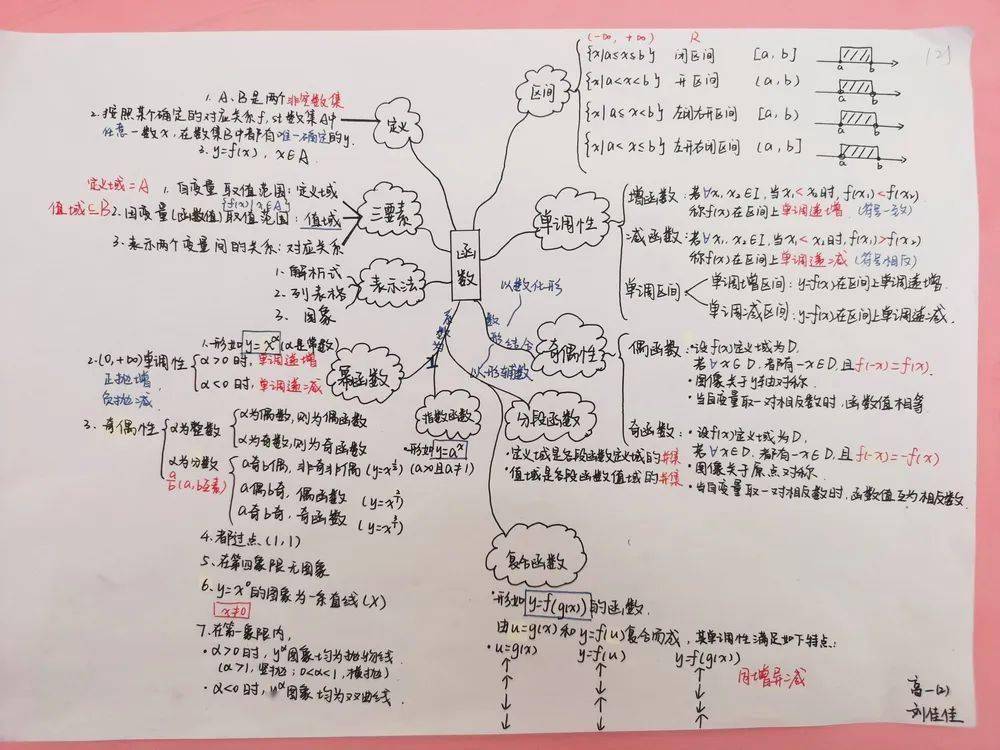 函数
定义
1. A、B是两个非空数集
2. 按照某个确定的对应关系f, 对数集A中
任意一数x, 在数集B中都有唯一确定的y.
3. y=f(x), x∈A
三要素
定义域=A
1. 自变量取值范围: 定义域
{f(x)|x∈A}
值域⊆B
2. 因变量(函数值)取值范围: 值域
3. 表示两个变量间的关系: 对应关系
表示法
1. 解析式
2. 列表格
3. 图象
系数为1
幂函数
1. 形如y=x^α(α是常数)
2. (0, +∞)单调性
α>0时, 单调递增
α<0时, 单调递减
正抛增
负抛减
3. 奇偶性
α为整数
α为偶数, 则为偶函数
α为奇数, 则为奇函数
α为分数
a/b(a, b互素)
a奇b偶, 非奇非偶
a偶b奇, 偶函数
a奇b奇, 奇函数
4. 都过点(1, 1)
5. 在第四象限无图象
6. y=x⁰的图象为一条直线(X)
x≠0
7. 在第一象限内,
· α>0时, y^α图象均为抛物线
(α>1, 竖抛; 0<α<1, 横抛)
· α<0时, y^α图象均为双曲线
指数函数
·形如y=a^x
(a>0且a≠1)
区间
(-∞, +∞) R
{x|a≤x≤b} 闭区间 [a, b] a b
{x|a<x<b} 开区间 (a, b) a b
{x|a≤x<b} 左闭右开区间 [a, b) a b
{x|a<x≤b} 左开右闭区间 (a, b] a b
[2]
单调性
增函数: 若∀x₁, x₂∈I, 当x₁<x₂时, f(x₁)<f(x₂)
称f(x)在区间上单调递增 (符号一致)
减函数: 若∀x₁, x₂∈I, 当x₁<x₂时, f(x₁)>f(x₂)
称f(x)在区间上单调递减 (符号相反)
单调区间
单调增区间: y=f(x)在区间上单调递增.
单调减区间: y=f(x)在区间上单调递减.
以数化形
数形结合
以形辅数
奇偶性
偶函数: · 设f(x)定义域为D,
若∀x∈D, 都有-x∈D, 且f(-x)=f(x).
· 图像关于y轴对称.
· 当自变量取一对相反数时, 函数值相等
奇函数: · 设f(x)定义域为D,
若∀x∈D, 都有-x∈D, 且f(-x)=-f(x)
· 图像关于原点对称.
· 当自变量取一对相反数时, 函数值互为相反数
分段函数
· 定义域是各段函数定义域的并集
· 值域是各段函数值域的并集
复合函数
·形如y=f(g(x))的函数.
由u=g(x)和y=f(u)复合而成, 其单调性满足如下特点:
· u=g(x) y=f(u) y=f(g(x))
↑ ↑ ↑
↑ ↓ ↓
↓ ↑ ↓
↓ ↓ ↑
同增异减
高一(2)
刘佳佳